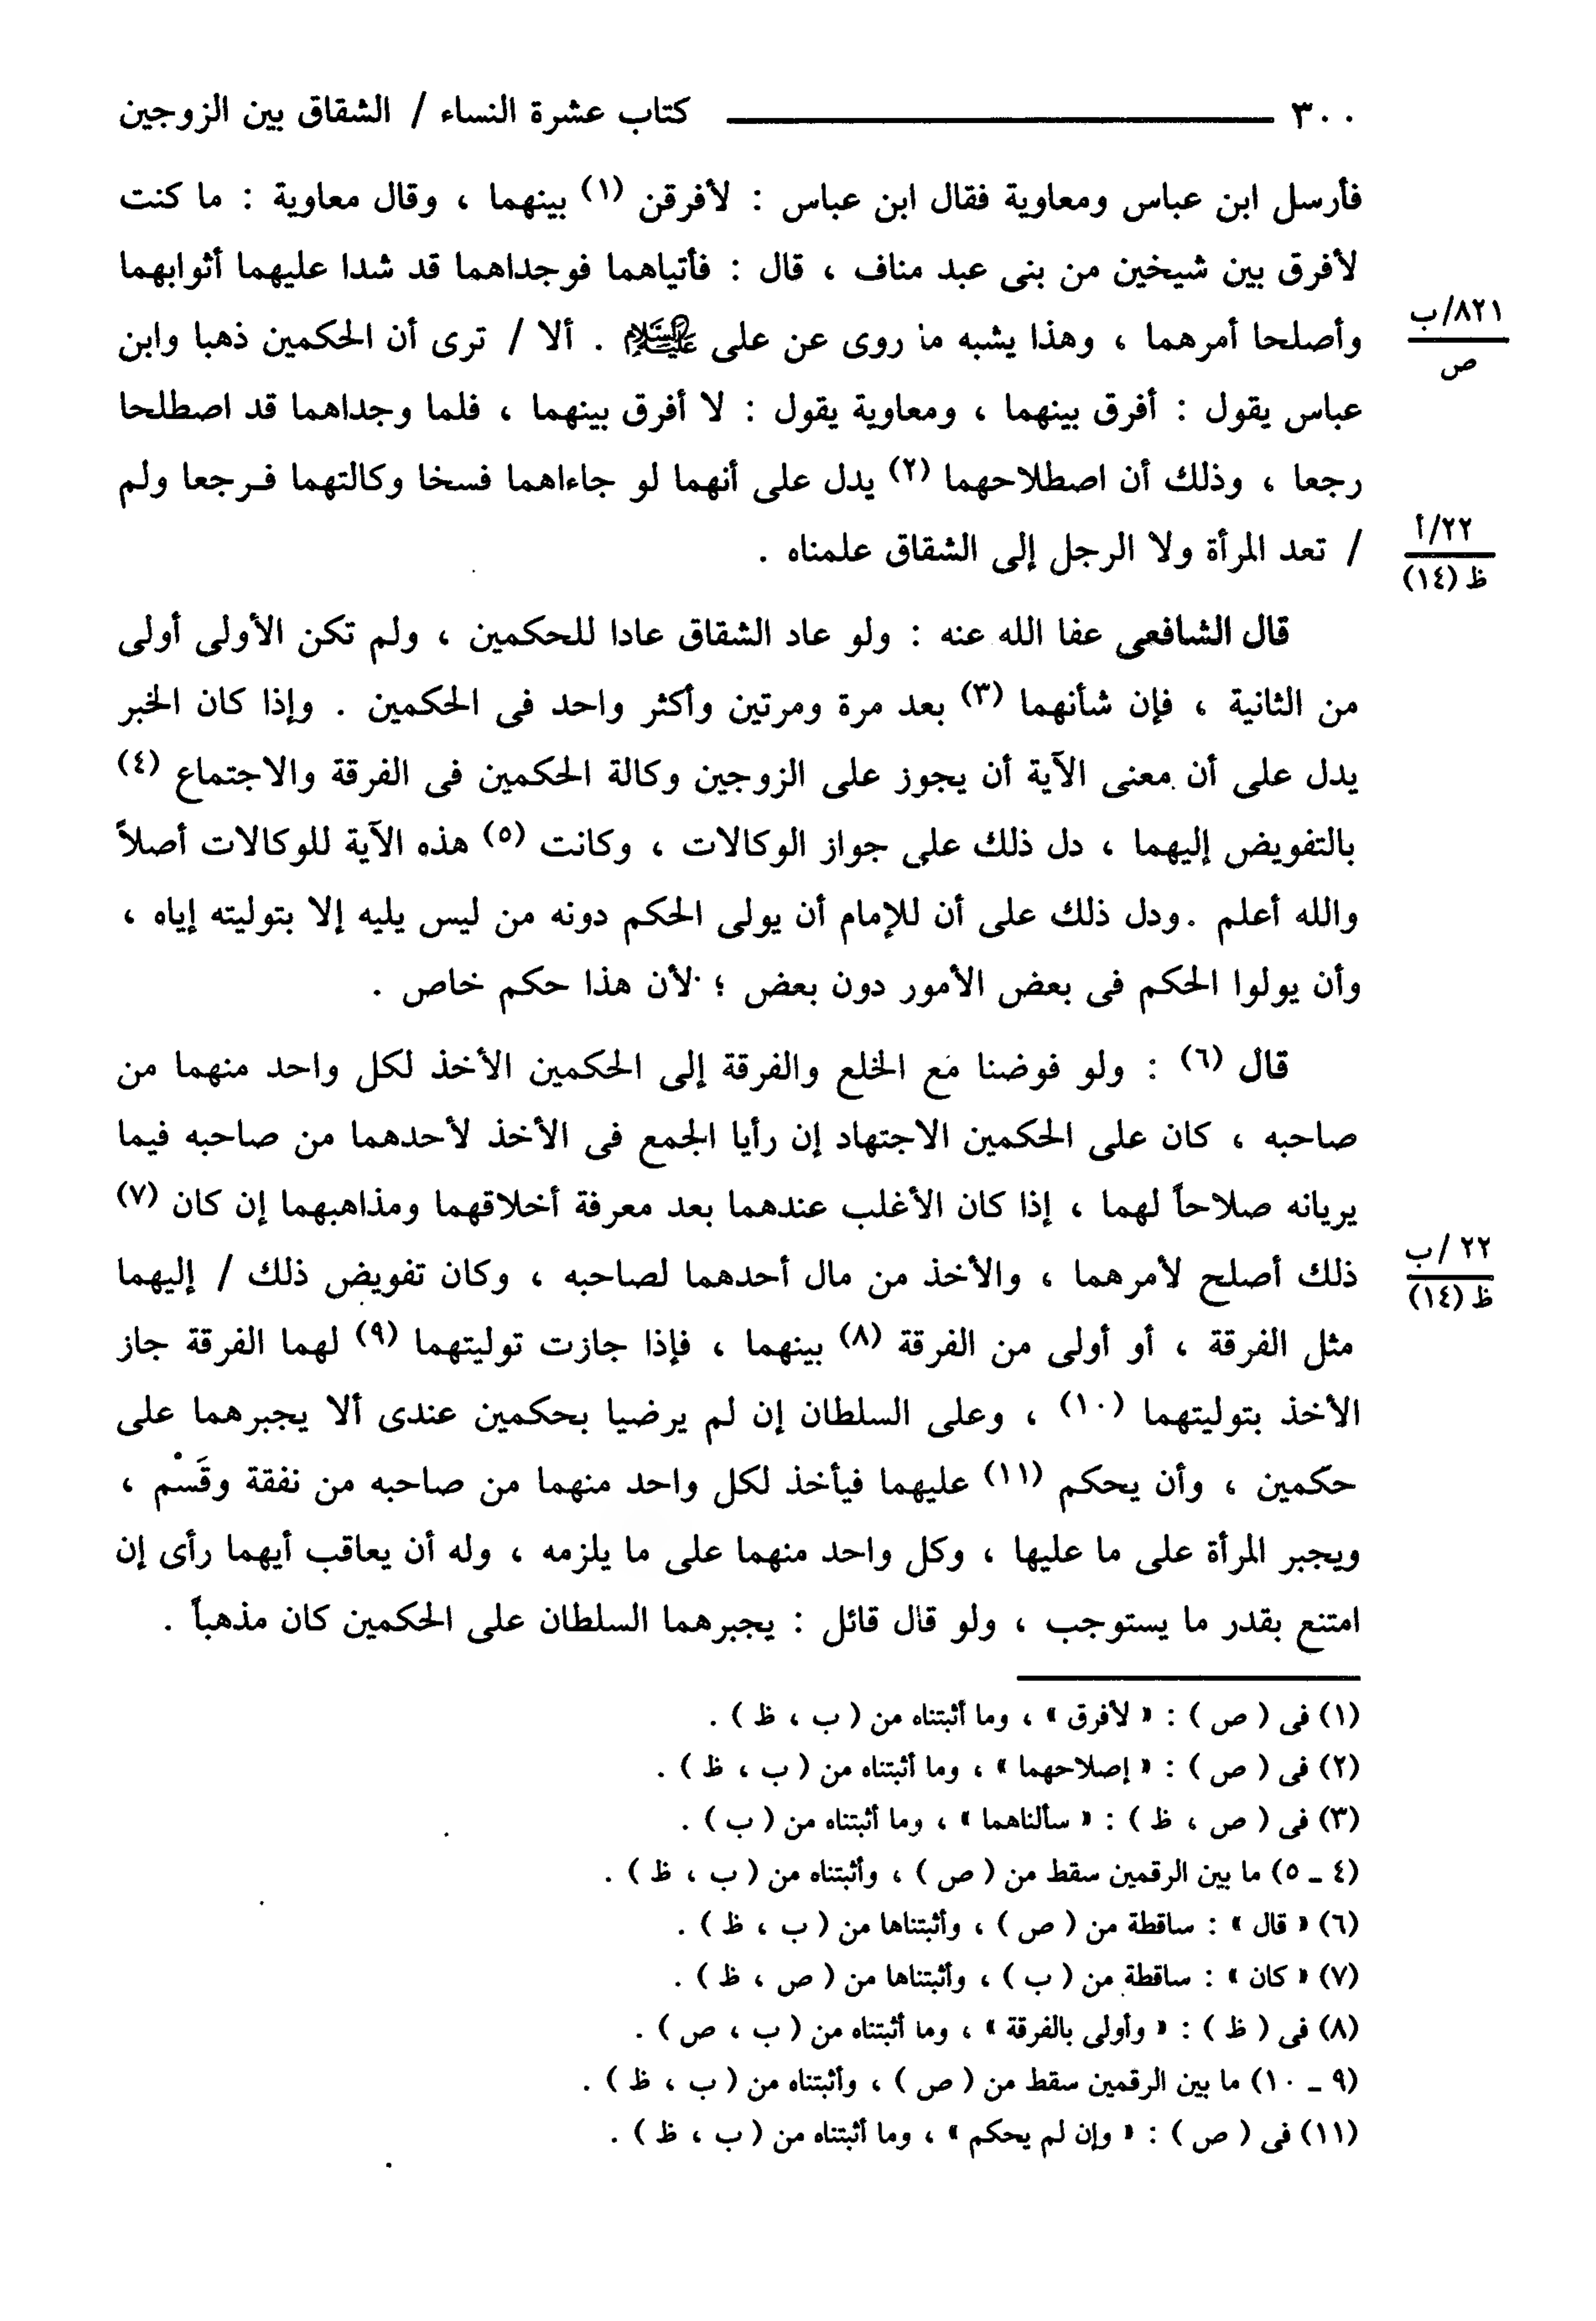 ٣٠٠ كتاب عشرة النساء / الشقاق بين الزوجين
فأرسل ابن عباس ومعاوية فقال ابن عباس : لأفرقن (١) بينهما ، وقال معاوية : ما كنت
لأفرق بين شيخين من بنى عبد مناف ، قال : فأتياهما فوجداهما قد شدا عليهما أثوابهما
وأصلحا أمرهما ، وهذا يشبه ما روى عن على عليه السلام . ألا / ترى أن الحكمين ذهبا وابن
٨٢١/ب
ص
عباس يقول : أفرق بينهما ، ومعاوية يقول : لا أفرق بينهما ، فلما وجداهما قد اصطلحا
رجعا ، وذلك أن اصطلاحهما (٢) يدل على أنهما لو جاءاهما فسخا وكالتهما فرجعا ولم
/ تعد المرأة ولا الرجل إلى الشقاق علمناه .
٢٢/أ
ظ (١٤)
قال الشافعى عفا الله عنه : ولو عاد الشقاق عادا للحكمين ، ولم تكن الأولى أولى
من الثانية ، فإن شأنهما (٣) بعد مرة ومرتين وأكثر واحد فى الحكمين . وإذا كان الخبر
يدل على أن معنى الآية أن يجوز على الزوجين وكالة الحكمين فى الفرقة والاجتماع (٤)
بالتفويض إليهما ، دل ذلك على جواز الوكالات ، وكانت (٥) هذه الآية للوكالات أصلاً
والله أعلم . ودل ذلك على أن للإمام أن يولى الحكم دونه من ليس يليه إلا بتوليته إياه ،
وأن يولوا الحكم فى بعض الأمور دون بعض ؛ لأن هذا حكم خاص .
قال (٦) : ولو فوضنا مع الخلع والفرقة إلى الحكمين الأخذ لكل واحد منهما من
صاحبه ، كان على الحكمين الاجتهاد إن رأيا الجمع فى الأخذ لأحدهما من صاحبه فيما
يريانه صلاحاً لهما ، إذا كان الأغلب عندهما بعد معرفة أخلاقهما ومذاهبهما إن كان (٧)
ذلك أصلح لأمرهما ، والأخذ من مال أحدهما لصاحبه ، وكان تفويض ذلك / إليهما
٢٢/ب
ظ (١٤)
مثل الفرقة ، أو أولى من الفرقة (٨) بينهما ، فإذا جازت توليتهما (٩) لهما الفرقة جاز
الأخذ بتوليتهما (١٠) ، وعلى السلطان إن لم يرضيا بحكمين عندى ألا يجبرهما على
حكمين ، وأن يحكم (١١) عليهما فيأخذ لكل واحد منهما من صاحبه من نفقة وقَسْم ،
ويجبر المرأة على ما عليها ، وكل واحد منهما على ما يلزمه ، وله أن يعاقب أيهما رأى إن
امتنع بقدر ما يستوجب ، ولو قال قائل : يجبرهما السلطان على الحكمين كان مذهباً .
(١) فى ( ص ) : « لأفرق » ، وما أثبتناه من ( ب ، ظ ) .
(٢) فى ( ص ) : « إصلاحهما » ، وما أثبتناه من ( ب ، ظ ) .
(٣) فى ( ص ، ظ ) : « سألناهما » ، وما أثبتناه من ( ب ) .
(٤ - ٥) ما بين الرقمين سقط من ( ص ) ، وأثبتناه من ( ب ، ظ ) .
(٦) « قال » : ساقطة من ( ص ) ، وأثبتناها من ( ب ، ظ ) .
(٧) « كان » : ساقطة من ( ب ) ، وأثبتناها من ( ص ، ظ ) .
(٨) فى ( ظ ) : « وأولى بالفرقة » ، وما أثبتناه من ( ب ، ص ) .
(٩ - ١٠) ما بين الرقمين سقط من ( ص ) ، وأثبتناه من ( ب ، ظ ) .
(١١) فى ( ص ) : « وإن لم يحكم » ، وما أثبتناه من ( ب ، ظ ) .